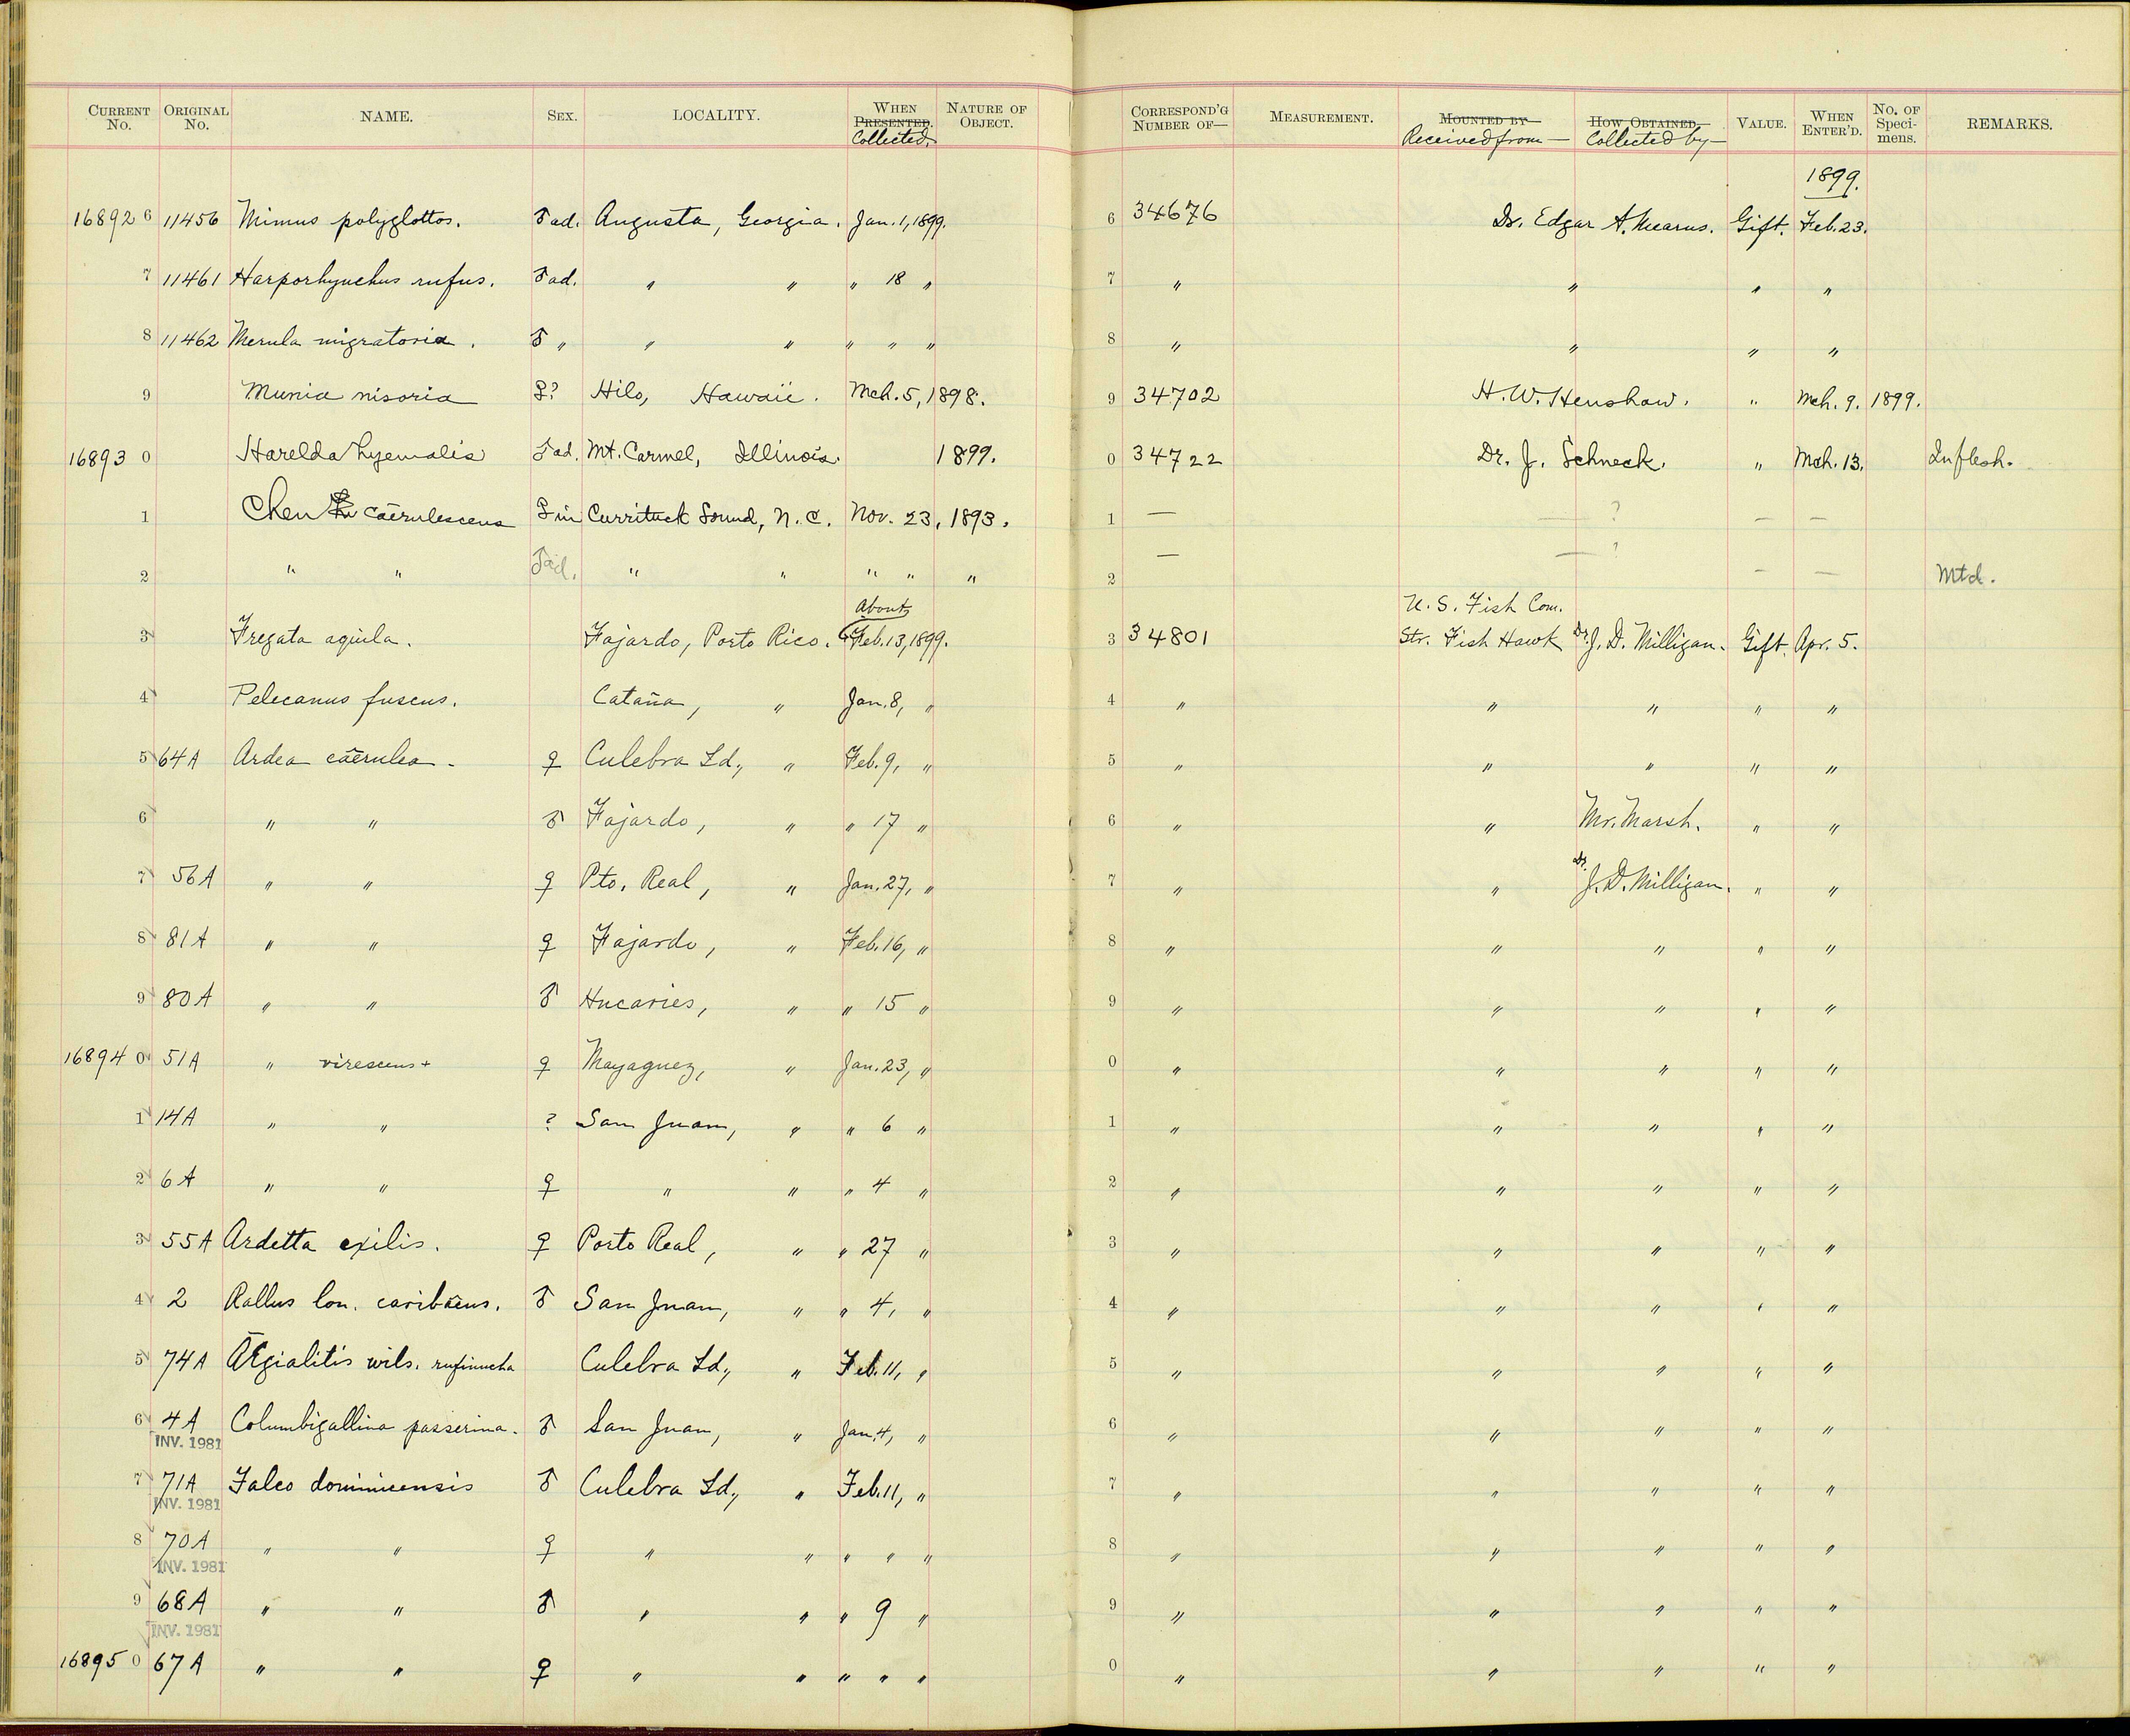 CURRENT No. ORIGINAL No. NAME. SEX. LOCALITY. WHEN PRESENTED. Collected. NATURE OF OBJECT. CORRESPOND'G NUMBER OF— MEASUREMENT. MOUNTED BY Received from— HOW OBTAINED. Collected by— VALUE. WHEN ENTER'D. No. OF Speci-mens. REMARKS.
1899.
16892 6 11456 Mimus polyglottos. ♂ ad. Augusta, Georgia. Jan. 1, 1899. 6 34676 Dr. Edgar A. Mearns. Gift. Feb. 23.
7 11461 Harporhynchus rufus. ♂ ad. " " " 18 " 7 " " " "
8 11462 Merula migratoria. ♂ " " " " " " 8 " " " "
9 Munia nisoria ♀? Hilo, Hawaii. Mch. 5, 1898. 9 34702 H. W. Henshaw. " Mch. 9. 1899.
16893 0 Harelda hyemalis ♂ ad. Mt. Carmel, Illinois. 1899. 0 34722 Dr. J. Schneck. " Mch. 13. In flesh.
1 Chen cærulescens ♀ im Currituck Sound, N. C. Nov. 23, 1893. 1 — — ? — —
2 " " ♂ ad. " " " " " 2 — — ? — — Mtd.
3 Fregata aquila. Fajardo, Porto Rico. About Feb. 13, 1899. 3 34801 U. S. Fish Com. Str. Fish Hawk Dr. J. D. Milligan. Gift. Apr. 5.
4 Pelecanus fuscus. Cataña, " Jan. 8, " 4 " " " " "
5 64A Ardea cærulea. ♀ Culebra Id., " Feb. 9, " 5 " " " " "
6 " " ♂ Fajardo, " " 17 " 6 " " Mr. Marsh. " "
7 56A " " ♀ Pto. Real, " Jan. 27, " 7 " " Dr. J. D. Milligan. " "
8 81A " " ♀ Fajardo, " Feb. 16, " 8 " " " " "
9 80A " " ♂ Hucaries, " " 15 " 9 " " " " "
16894 0 51A " virescens + ♀ Mayaguez, " Jan. 23, " 0 " " " " "
1 14A " " ? San Juan, " " 6 " 1 " " " " "
2 6A " " ♀ " " " 4 " 2 " " " " "
3 55A Ardetta exilis. ♀ Porto Real, " " 27 " 3 " " " " "
4 2 Rallus lon. caribæus. ♂ San Juan, " " 4, " 4 " " " " "
5 74A Ægialitis wils. rufinucha Culebra Id., " Feb. 11, " 5 " " " " "
6 4A Columbigallina passerina. ♂ San Juan, " Jan. 4, " 6 " " " " "
INV. 1981
7 71A Falco dominicensis ♂ Culebra Id., " Feb. 11, " 7 " " " " "
INV. 1981
8 70A " " ♀ " " " " " 8 " " " " "
INV. 1981
9 68A " " ♂ " " " 9 " 9 " " " " "
INV. 1981
16895 0 67A " " ♀ " " " " " 0 " " " " "